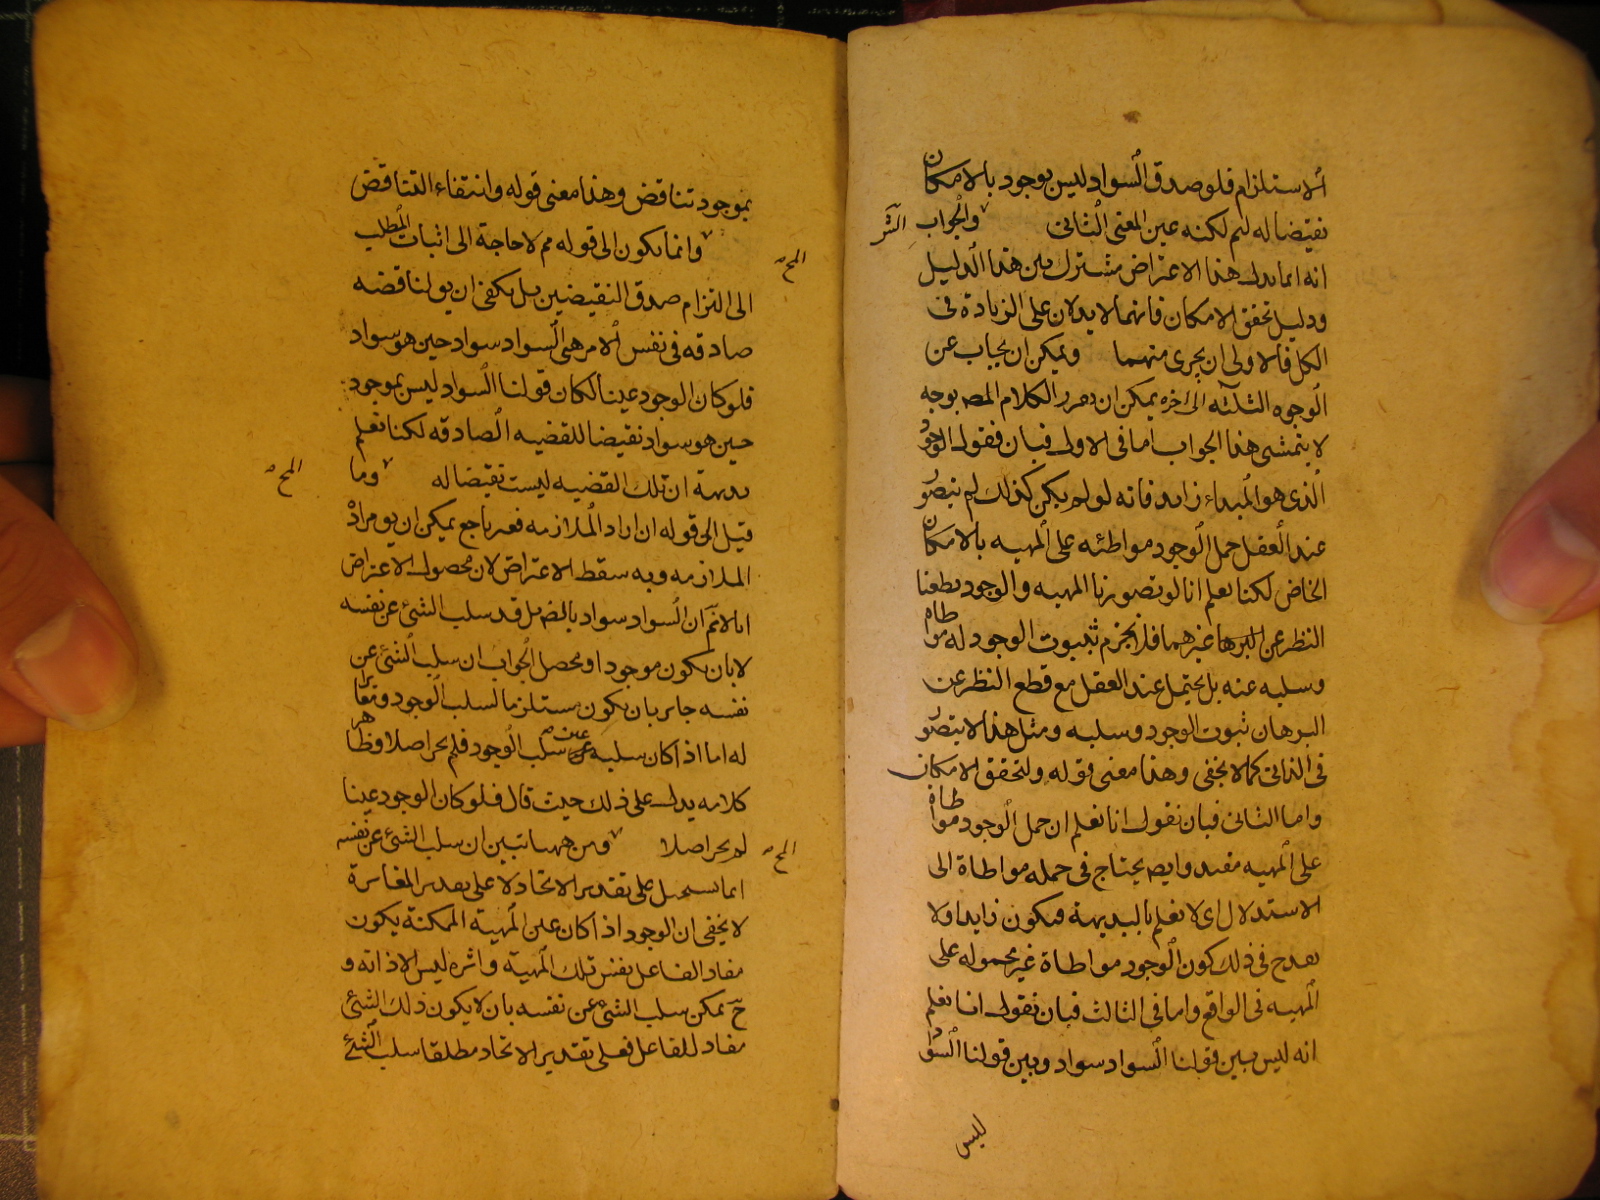 الاستلزام فلو صدق السواد ليس بوجود بالامكان
نقيضا له لتم لكنه عين المعنى الثانى والجواب
الش
انه انما يدل هذا الاعتراض مشترك بين هذا الدليل
ودليل تحقق الامكان فانهما لا يدلان على الزيادة فى
الكل فالاولى ان يجرى منهما ويمكن ان يجاب عن
الوجوه الثلثه الى اخره يمكن ان يقرر الكلام المص بوجه
لا يتمشى هذا الجواب اما فى الاول فبان نقول الوجود
الذى هو المبداء زايد فانه لو لم يكن كذلك لم يتصور
عند العقل حمل الوجود مواطئه على المهيه بالامكان
الخاص لكنا نعلم انا لو تصورنا المهيه والوجود وقطعنا
النظر عن البرها غيرهما فلا نجزم بثبوت الوجود له مواطاه
وسلبه عنه بل يحتمل عند العقل مع قطع النظر عن
البرهان ثبوت الوجود وسلبه ومثل هذا لا يتصور
فى الذاتى كما لا يخفى وهذا معنى قوله ولتحقق الامكان
واما الثانى فبان نقول انا نعلم ان حمل الوجود مواطاة
على المهيه مفيد وايض يحتاج فى حمله مواطاة الى
الاستدلال اى لا نعلم بالبديهة فيكون زايدا ولا
يقدح فى ذلك كون الوجود مواطاة غير محموله على
المهيه فى الواقع واما فى الثالث فبان نقول انا نعلم
انه ليس بين قولنا السواد سواد وبين قولنا السواد
ليس
بموجود تناقض وهذا معنى قوله وانتفاء التناقض
وانما يكون الى قوله مم لا حاجة الى اثبات المطلب
المح
الى التزام صدق النقيضين بل يكفى ان يق لنا قضيه
صادقه فى نفس الامر هى السواد سواد حين هو سواد
فلو كان الوجود عينا لكان قولنا السواد ليس بموجود
حين هو سواد نقيضا للقضيه الصادقه لكنا نعلم
بديهة ان تلك القضيه ليست نقيضا له وما
المح
قيل الى قوله ان اراد الملازمه فغير ناجع يمكن ان يق مراده
الملازمه وبه سقط الاعتراض لان محصول الاعتراض
انا لا نم ان السواد سواد بالض بل قد سلب الشئ عن نفسه
لا بان يكون موجودا ومحصل الجواب ان سلب الشئ عن
نفسه جايز بان يكون مستلزما لسلب الوجود ومغايرا
له اما اذا كان سلبه عين سلب الوجود فلم يجز اصلا وظاهر
كلامه يدل على ذلك حيث قال فلو كان الوجود عينا
لم يجز اصلا ومن ههنا تبين ان سلب الشئ عن نفسه
المح
انما يستحيل على تقدير الاتحاد لا على تقدير المغايرة
لا يخفى ان الوجود اذا كان عين المهية الممكنة يكون
مفاد الفاعل نفس تلك المهية واثره ليس الا ذاته و
ح يمكن سلب الشئ عن نفسه بان لا يكون ذلك الشئ
مفاد للفاعل فعلى تقدير الاتحاد مطلقا سلب الشئ